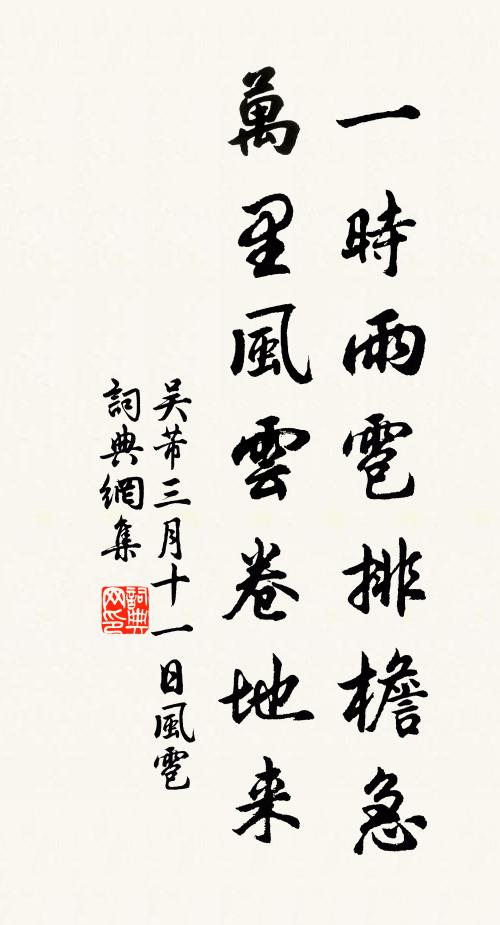 一時雨雹排檐急
萬里風雲卷地来
吴芾三月十一日風雹
詞典網集
詞典网印